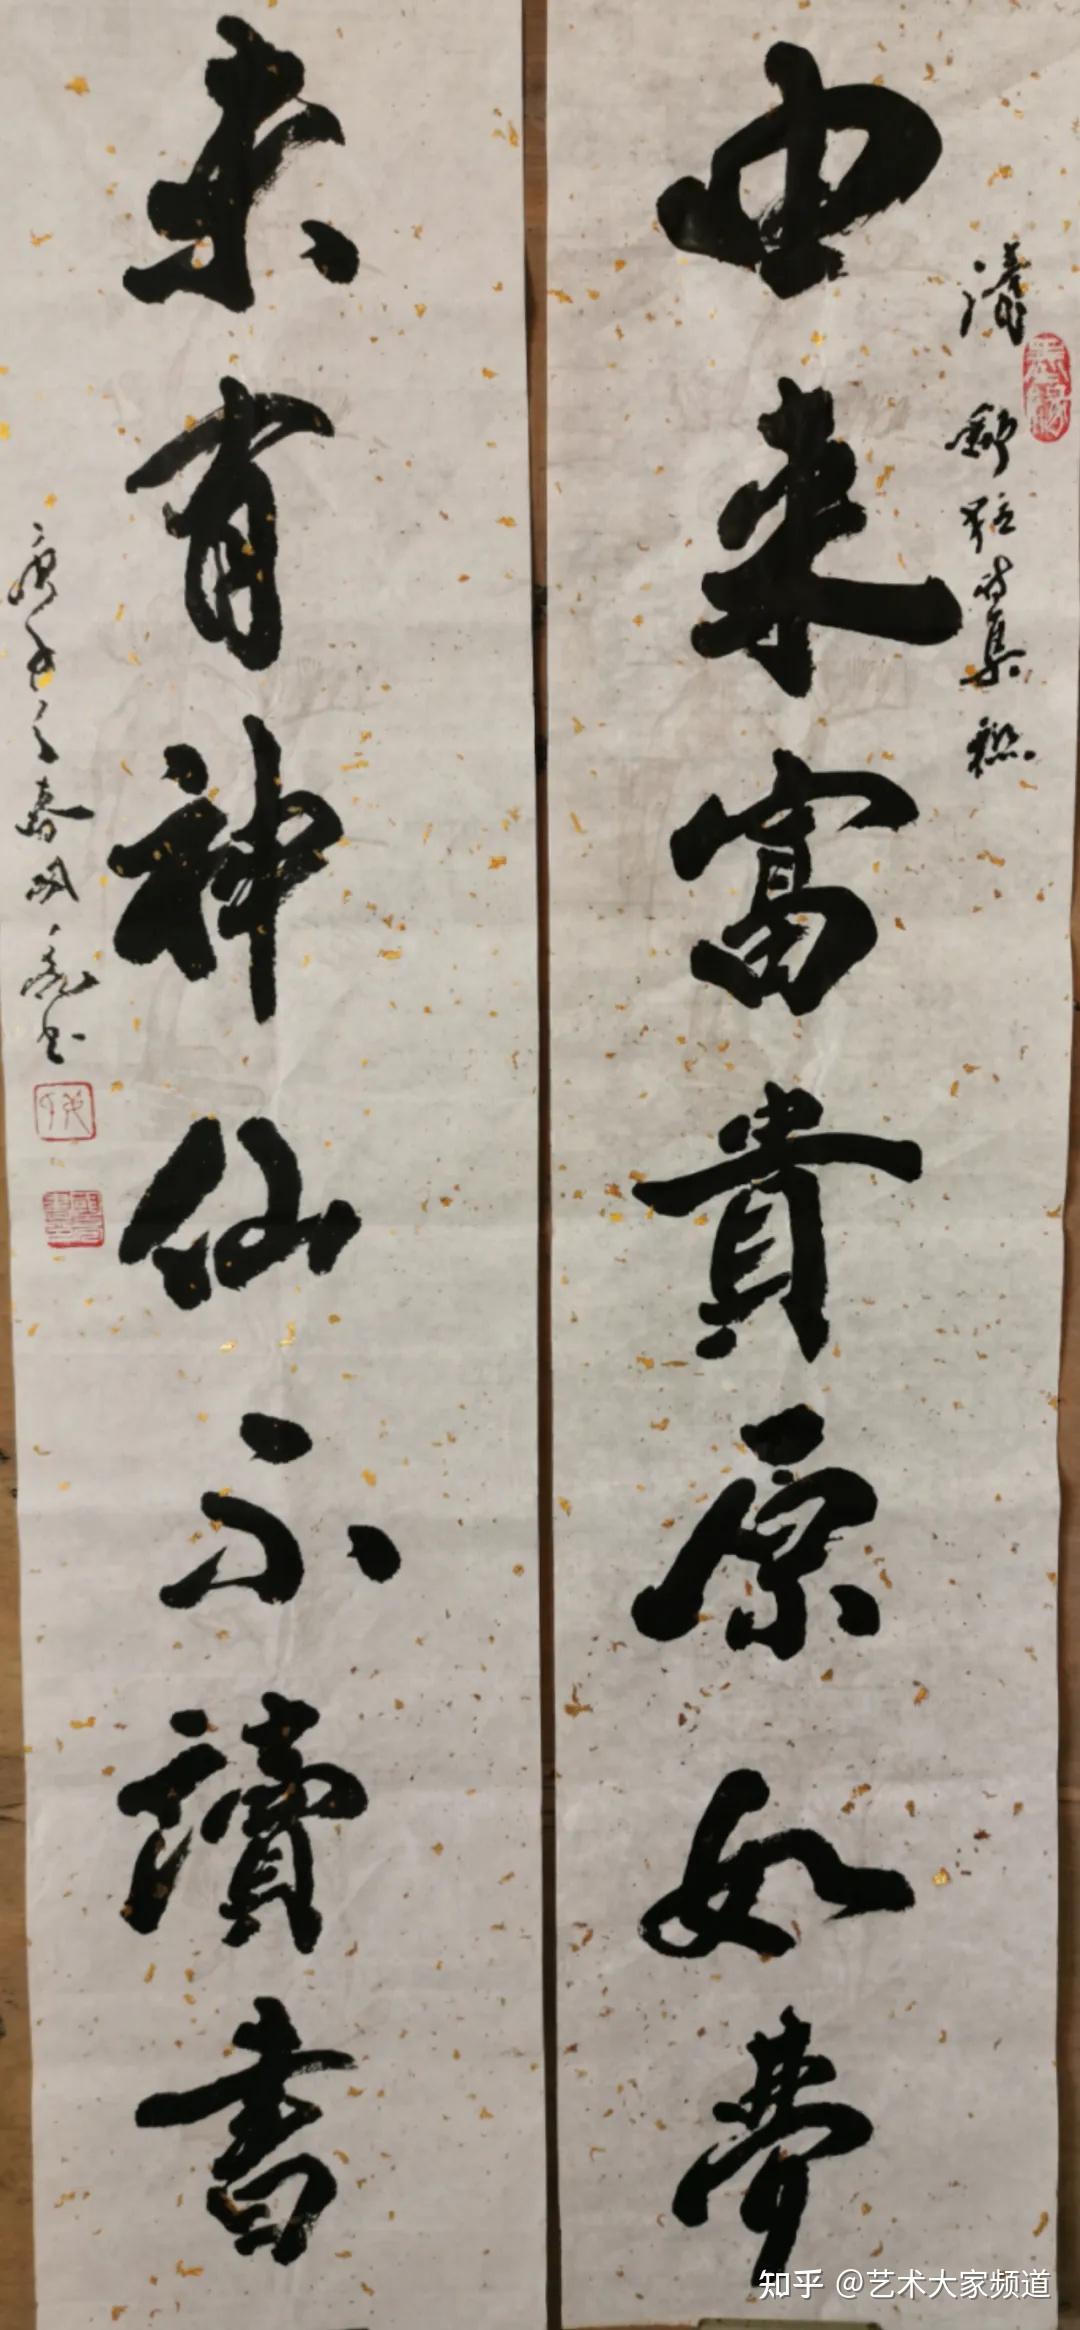 由来富貴原如夢
清
舒位诗集联
未有神仙不讀書
庚子之春
书
知乎 @艺术大家频道